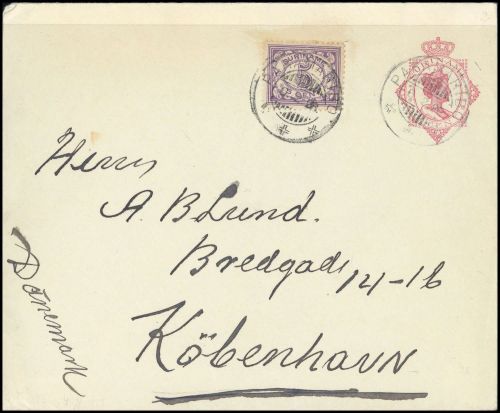 SURINAME
SURINAME
PARAMARIBO
Herrn
A. B Lund.
Bredgade 14-16
Köbenhavn
Dänemark